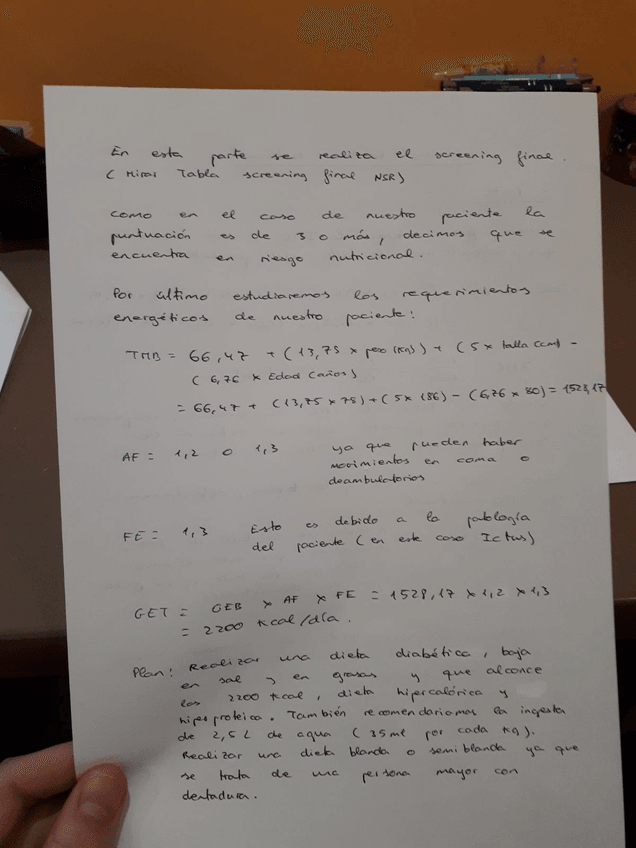 En esta parte se realiza el screening final.
(Mirar Tabla screening final NSR)
Como en el caso de nuestro paciente la
puntuación es de 3 o más, decimos que se
encuentra en riesgo nutricional.
Por último estudiaremos los requerimientos
energéticos de nuestro paciente:
TMB = 66,47 + (13,75 x peso (Kg)) + (5 x talla (cm) -
(6,76 x Edad (años)
= 66,47 + (13,75 x 75) + (5 x 186) - (6,76 x 80) = 1528,17
AF = 1,2 o 1,3 ya que pueden haber
movimientos en cama o
deambulatorios
FE = 1,3 Esto es debido a la patología
del paciente (en este caso Ictus)
GET = GEB x AF x FE = 1528,17 x 1,2 x 1,3
= 2200 Kcal/día.
Plan: Realizar una dieta diabética, baja
en sal y en grasas y que alcance
las 2200 Kcal, dieta hipercalórica y
hiperproteica. También recomendariamos la ingesta
de 2,5 L de agua (35 ml por cada Kg).
Realizar una dieta blanda o semiblanda ya que
se trata de una persona mayor con
dentadura.